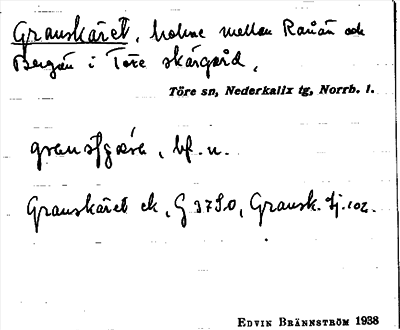 Granskäret, holme mellan Rånön och
Bergön i Töre skärgård.
Töre sn, Nederkalix tg, Norrb. l.
bf. n.
Granskäret ek, G 3750, Gransk.
EDVIN BRÄNNSTRÖM 1938